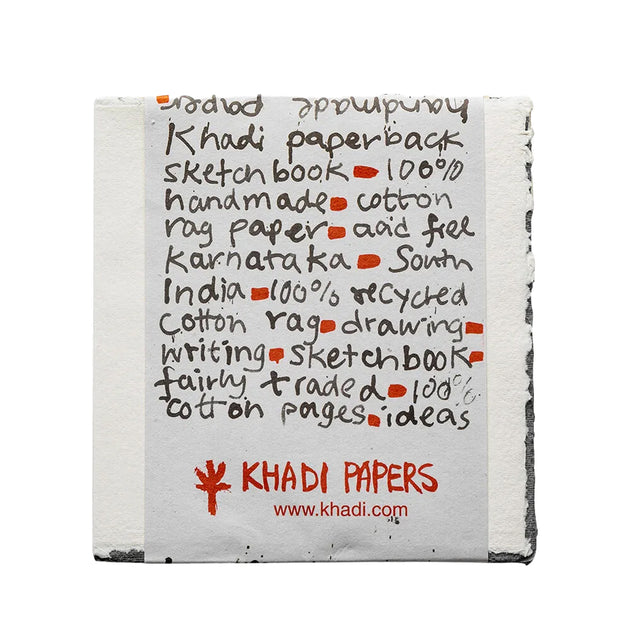 handmade paper
Khadi paperback
sketchbook 100%
handmade cotton
rag paper acid free
Karnataka South
India 100% recycled
cotton rag drawing
writing sketchbook
fairly traded 100%
cotton pages ideas
KHADI PAPERS
www.khadi.com